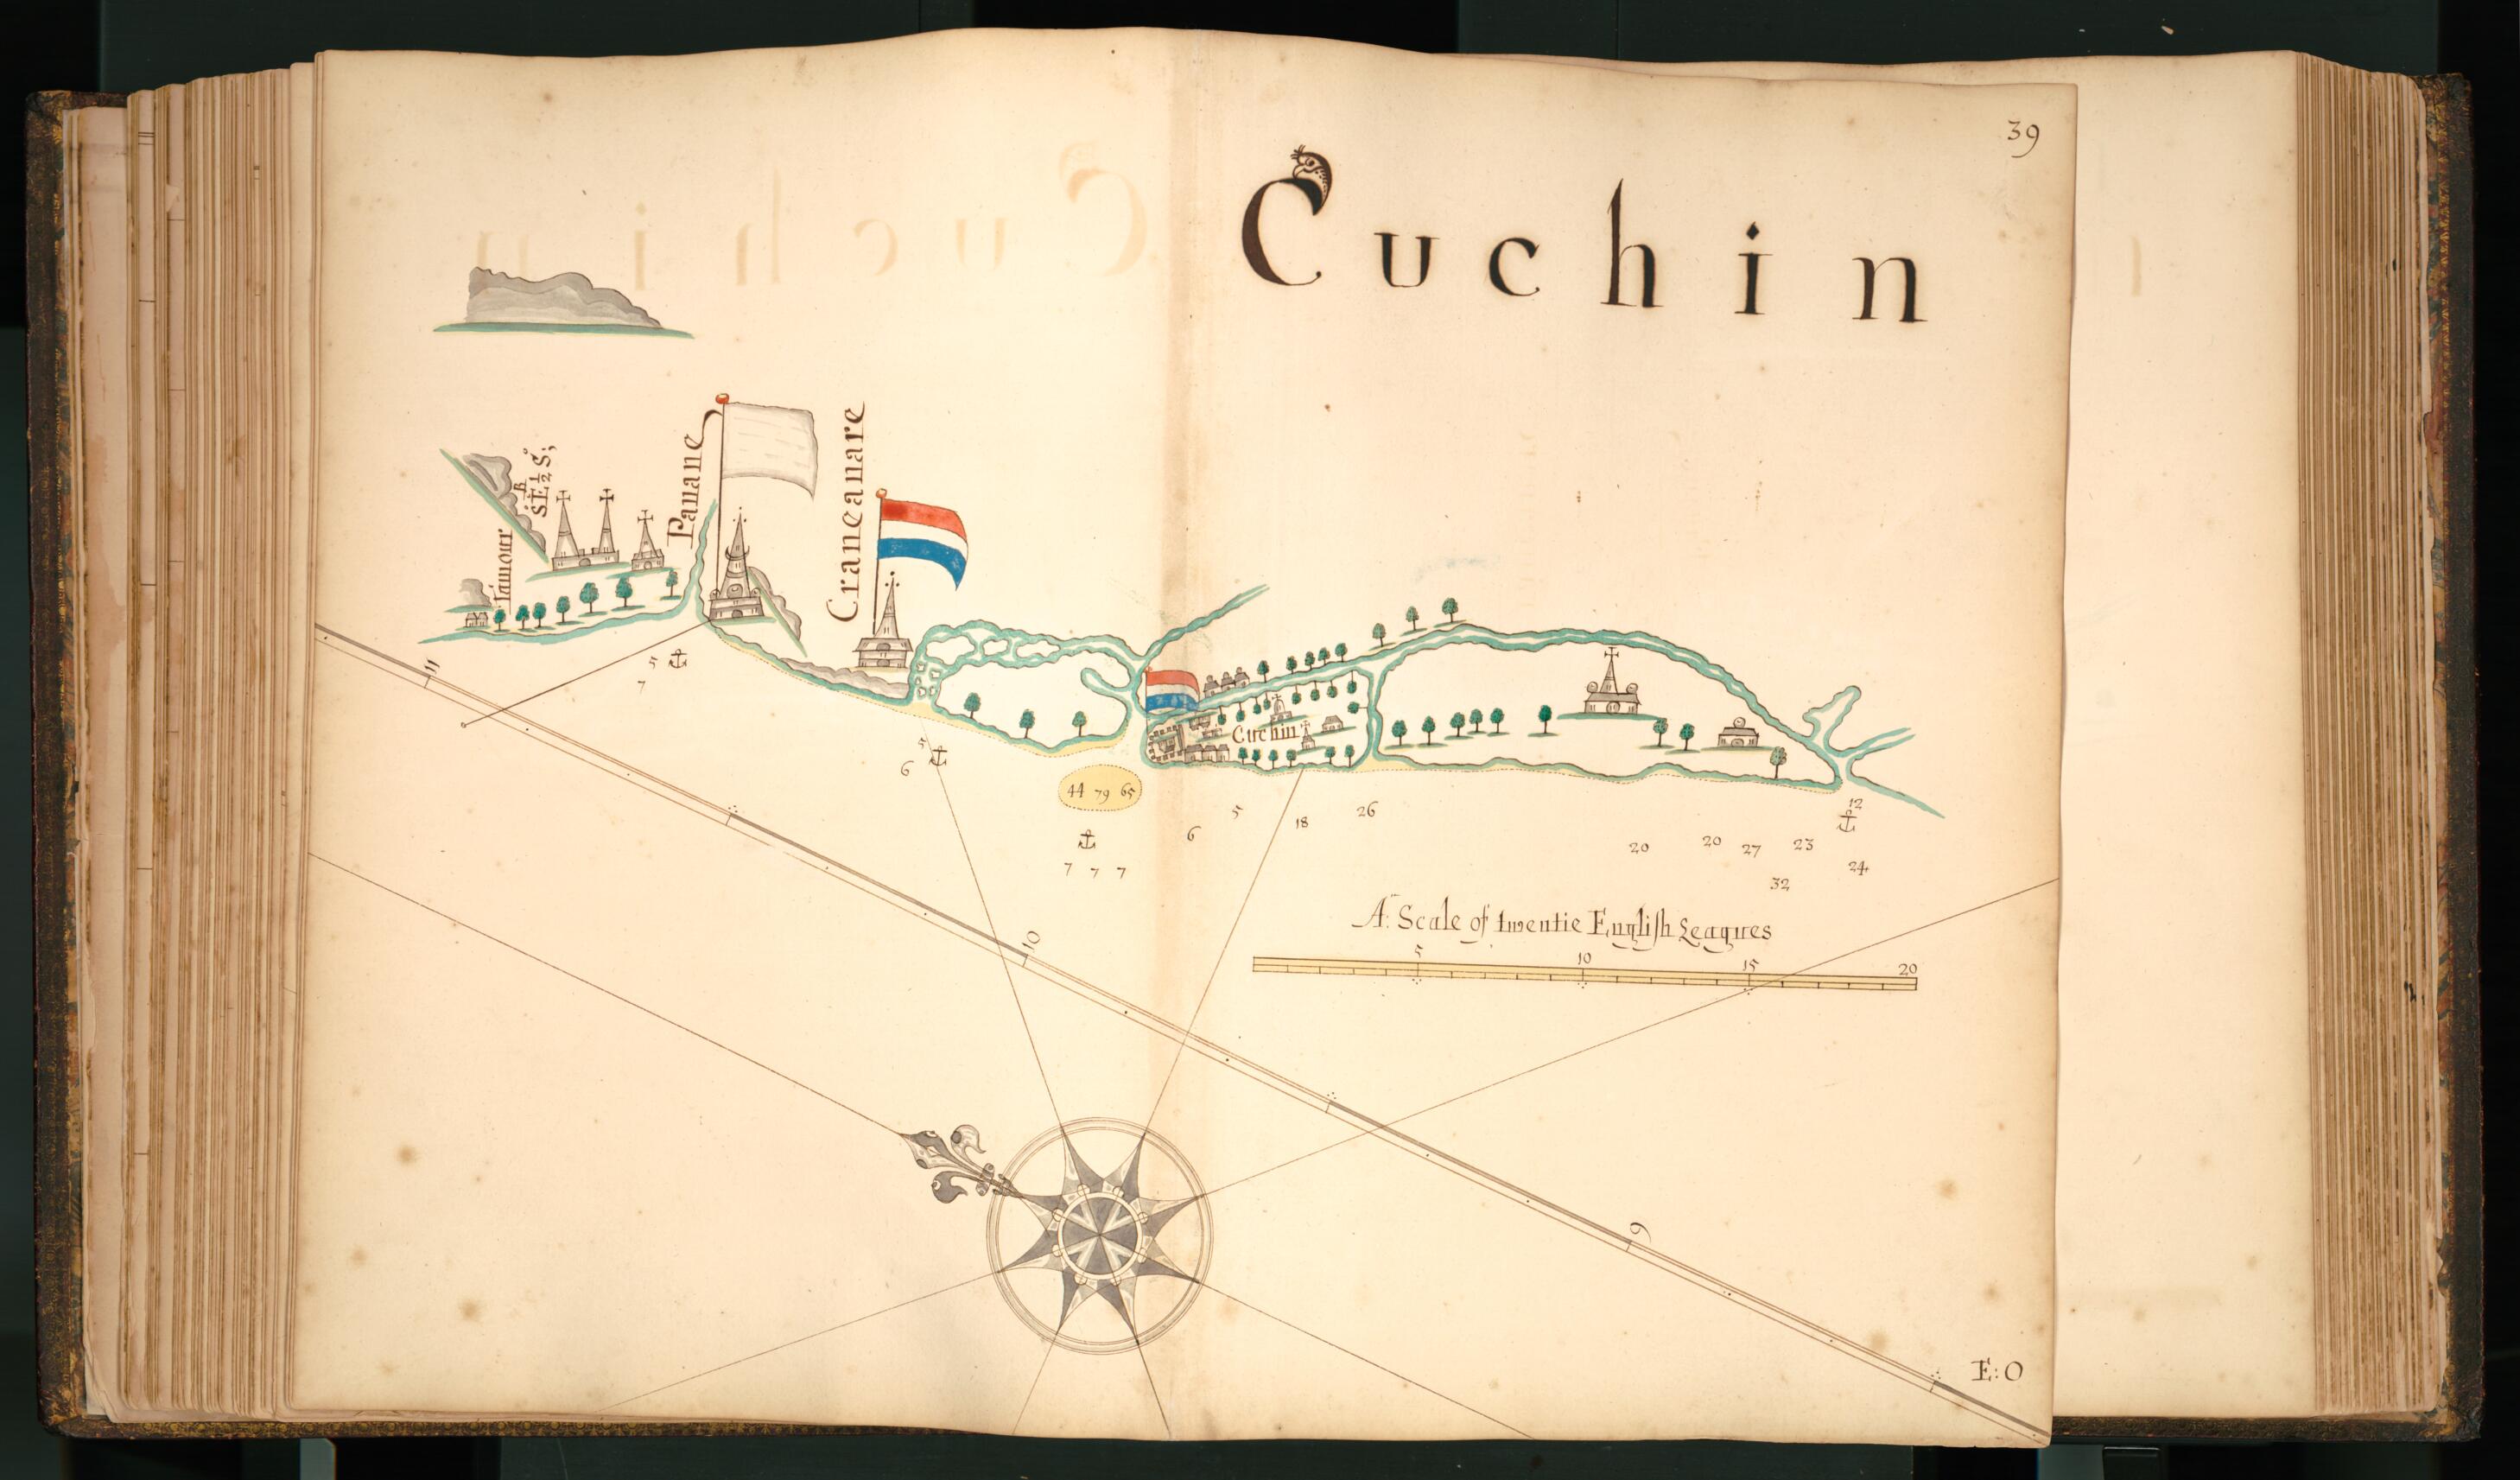 39
Cuchin
S:E ½ S;
Panane
Craneanare
Tanuour
11
5
7
5
6
Cuchin
44 79 65
7 7 7
6
5
18
26
20
20
27
23
32
12
24
A: Scale of twentie English Leagues
5 10 15 20
10
9
E:O